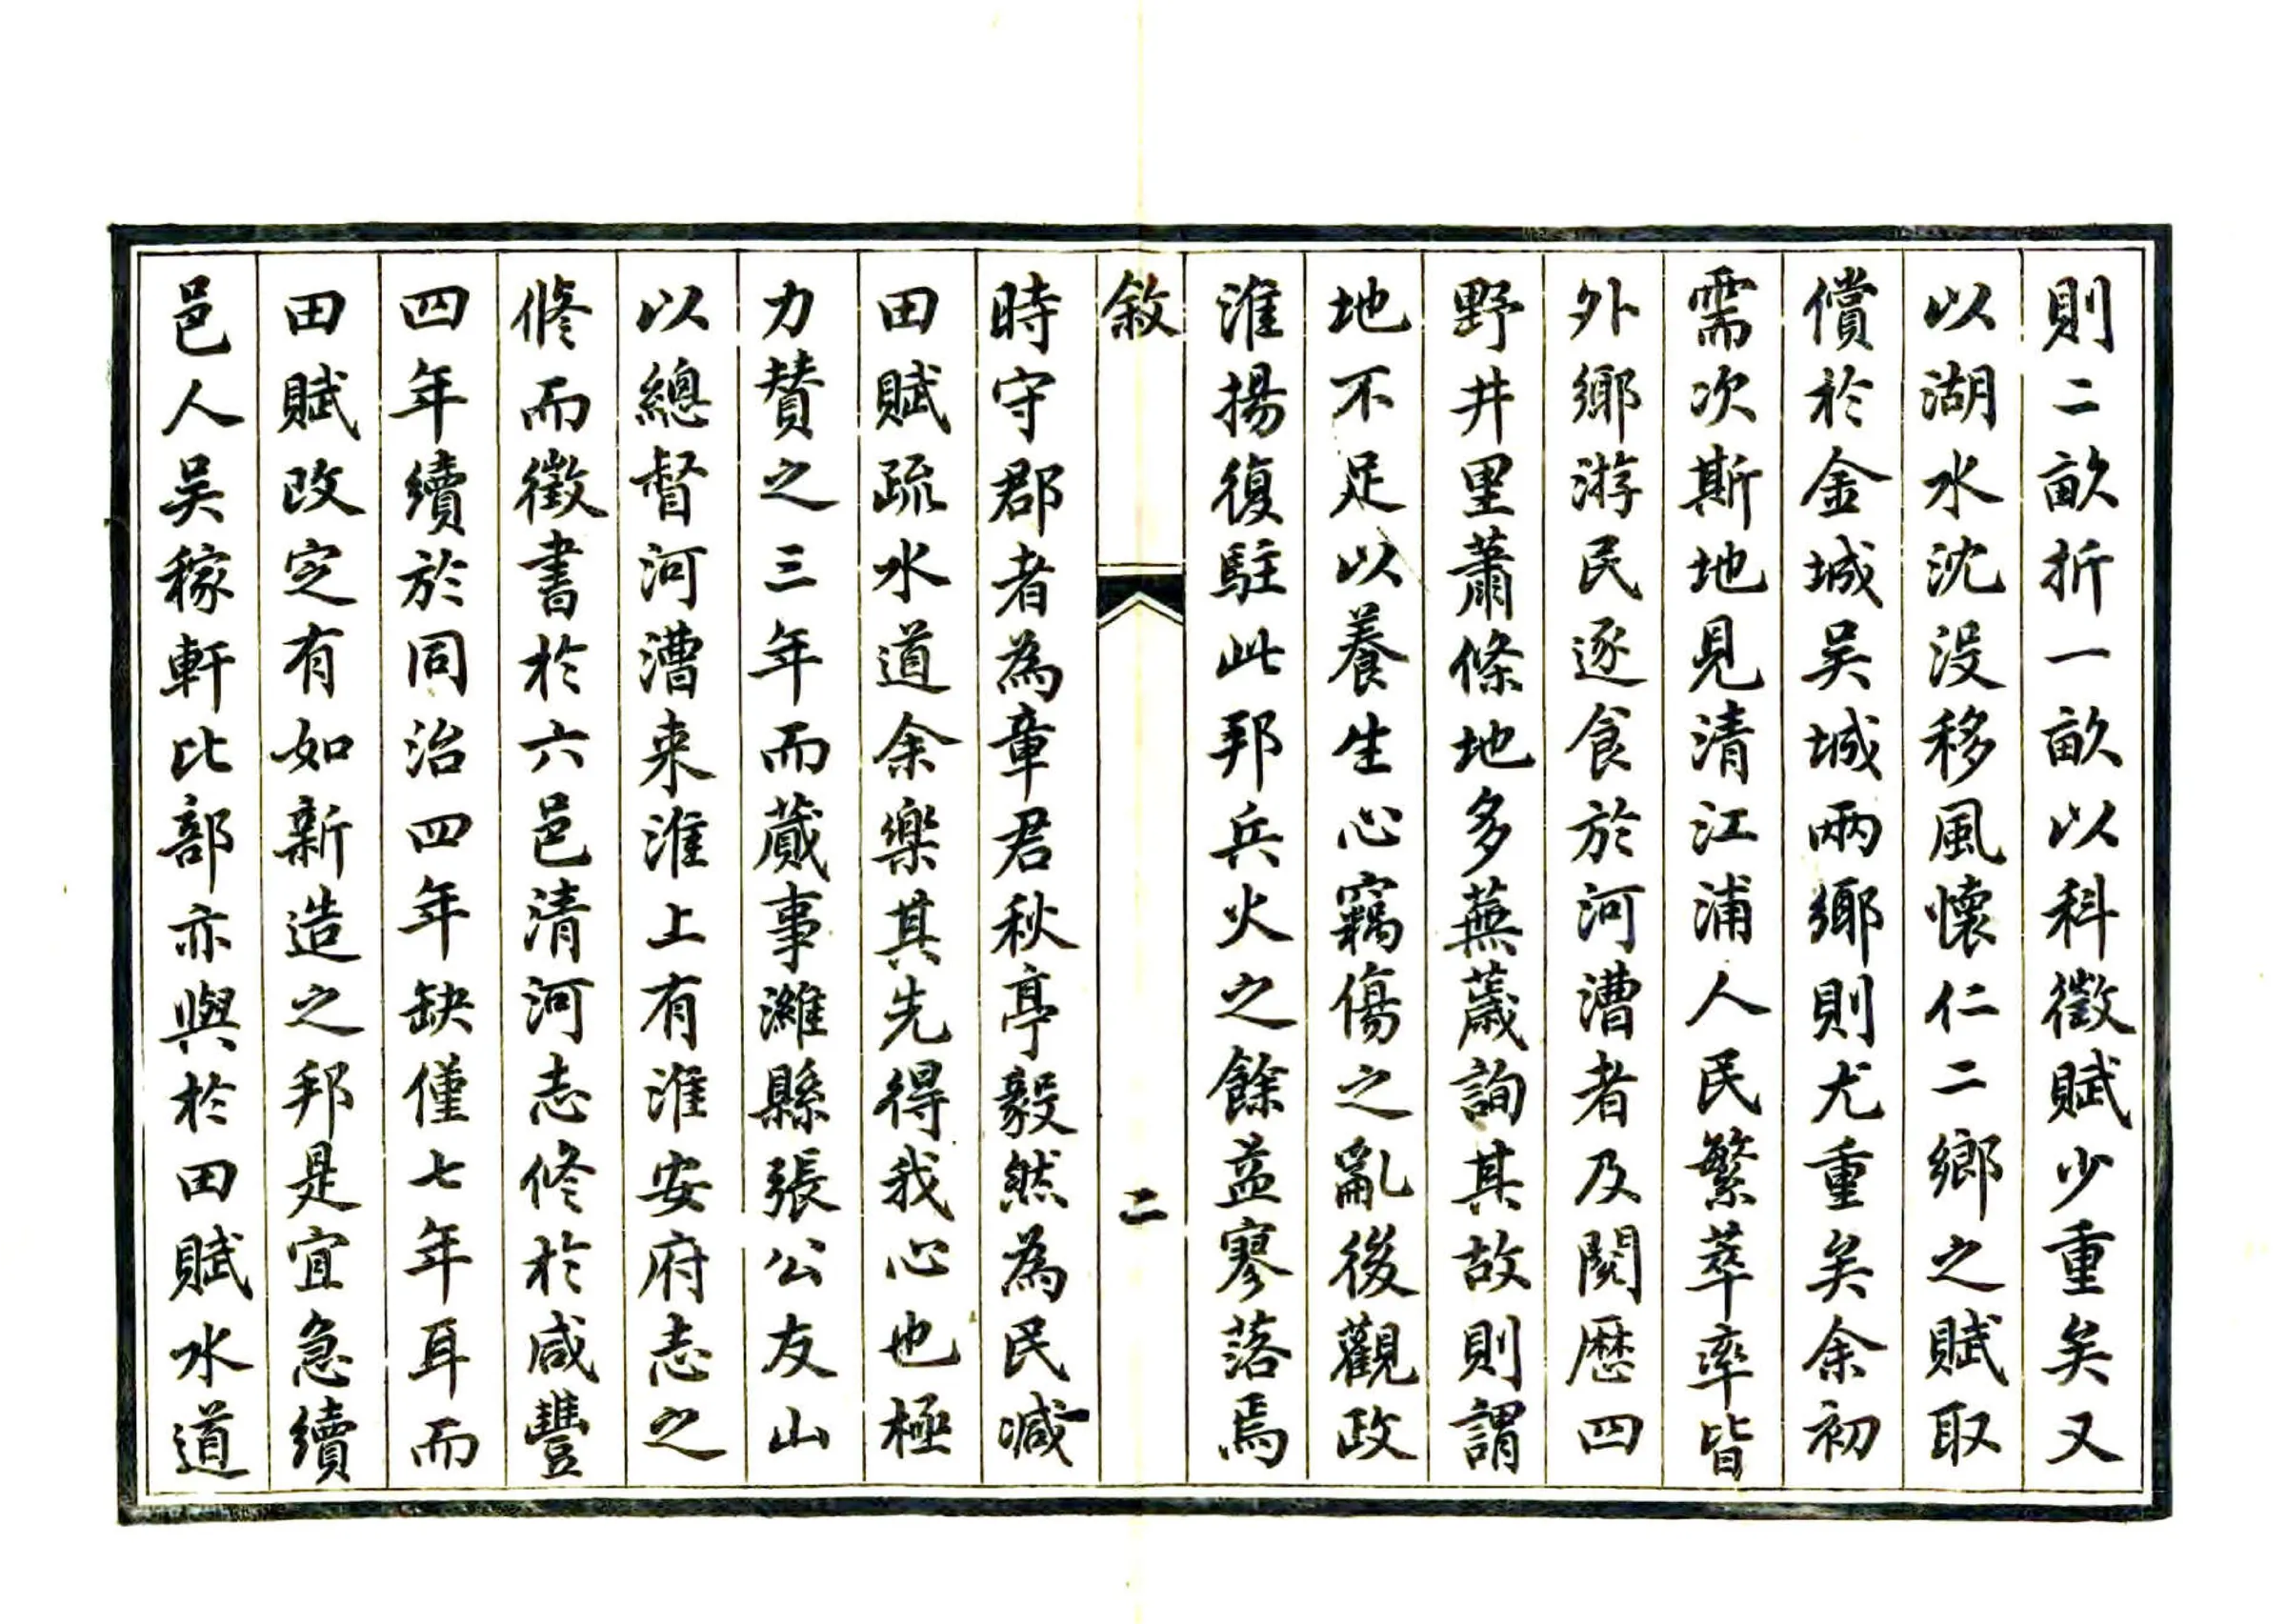 則二畝折一畝以科徵賦少重矣又
以湖水沈沒移風懷仁二鄉之賦取
償於金城吳城兩鄉則尤重矣余初
需次斯地見清江浦人民繁萃率皆
外鄉游民逐食於河漕者及閱歷四
野井里蕭條地多蕪薉詢其故則謂
地不足以養生心竊傷之亂後觀政
淮揚復駐此邦兵火之餘益寥落焉
敘
二
時守郡者為章君秋亭毅然為民減
田賦疏水道余樂其先得我心也極
力贊之三年而蕆事濰縣張公友山
以總督河漕來淮上有淮安府志之
修而徵書於六邑清河志修於咸豐
四年續於同治四年缺僅七年耳而
田賦改定有如新造之邦是宜急續
邑人吳稼軒比部亦與於田賦水道